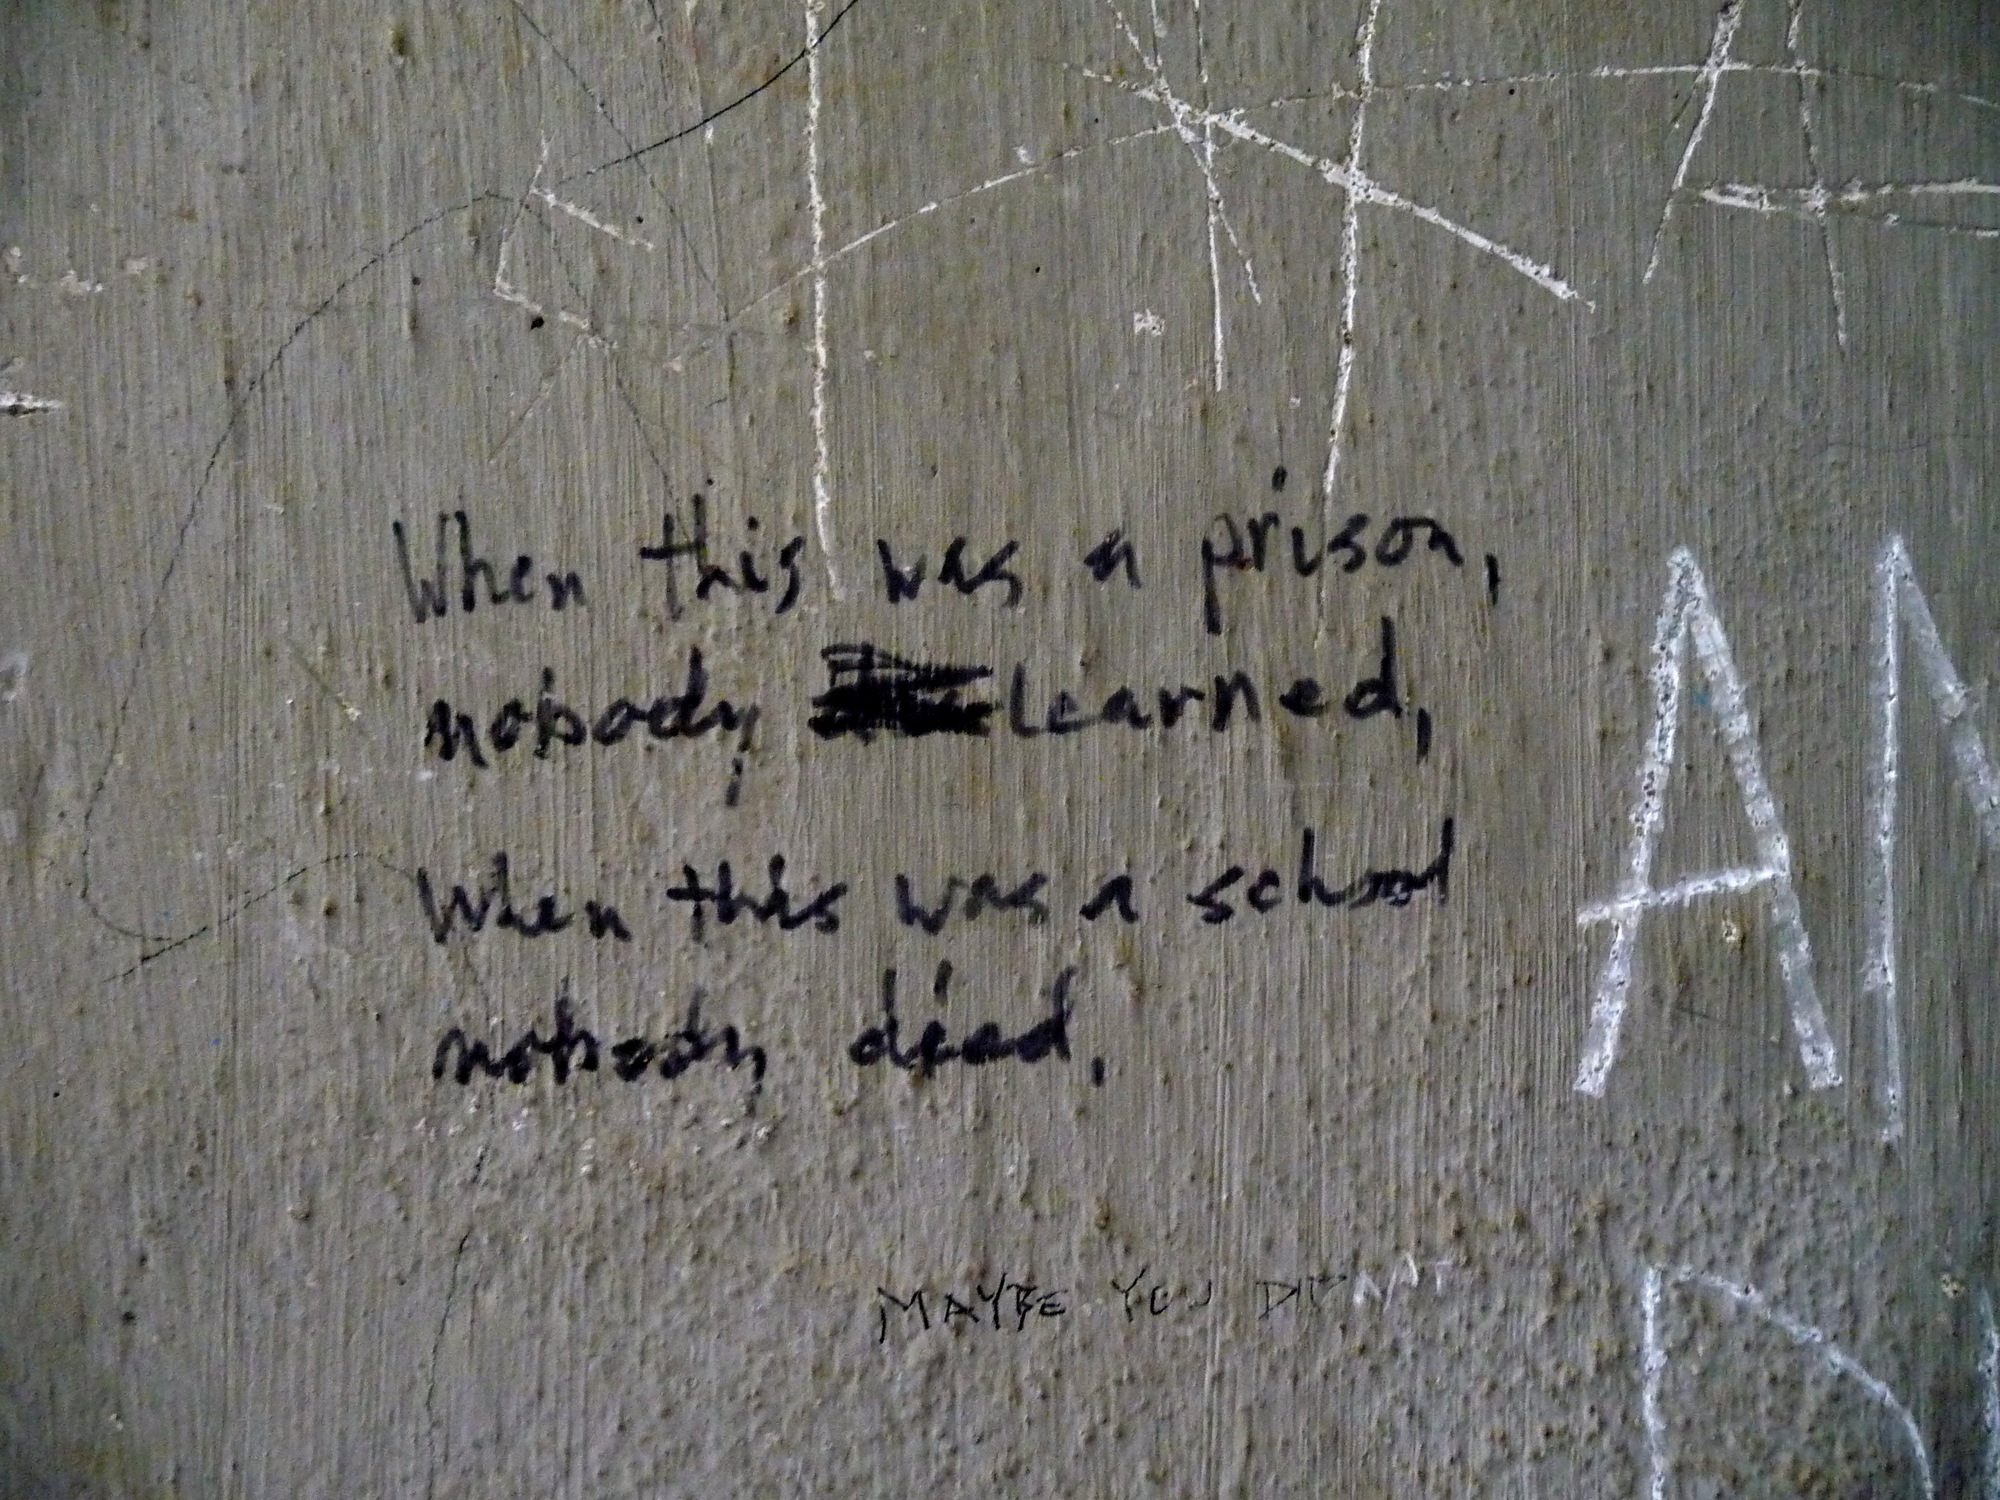 When this was a prison,
nobody learned,
When this was a school
nobody died,
AN
MAYBE YOU DIDNT